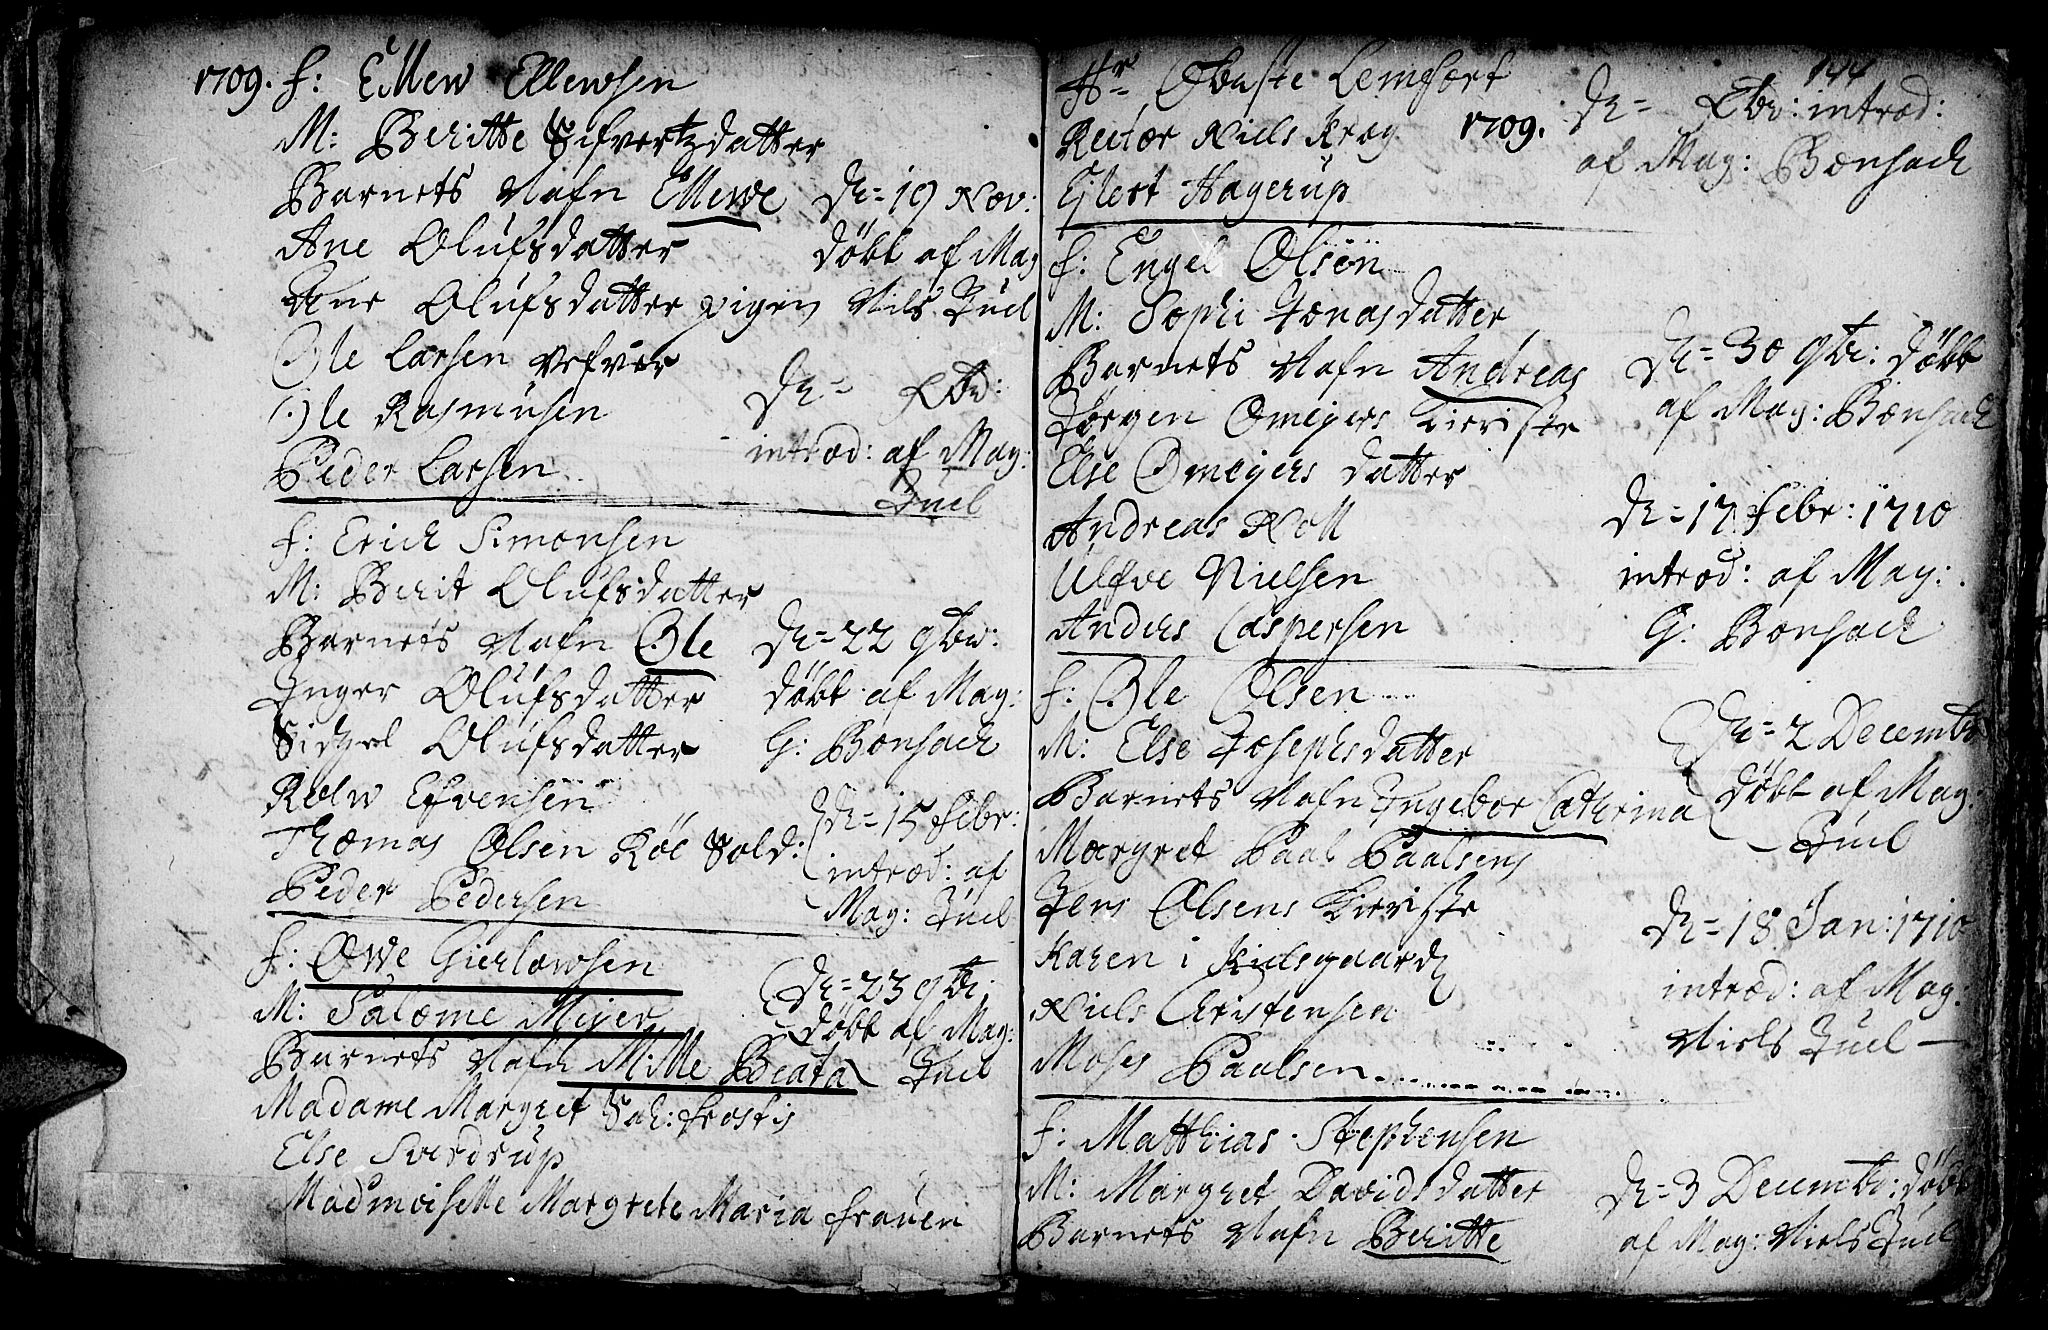 1709. F: Ellew Ellewsen
M: Beritte Sifvertzdatter
Barnets Nafn Ellewe
Ane Olufsdatter
Ane Olufsdatter pigen
Ole Larsen Vefver
Ole Rasmusen
Peder Larsen
D= 19 Nov:
døbt af Mag
Niels Juel
D= Xbr:
introd: af Mag:
Juel
F: Erich Simonsen
M: Berit Olufsdatter
Barnets Nafn Ole
Inger Olufsdatter
Sidzel Olufsdatter
Elvensen
Thomas Olsen Røe Sold:
Peder Pedersen
D= 22 9br:
døbt af Mag:
G: Bonsach
D= 15 Febr:
introd: af
Mag: Juel
F: Owe Gierlowsen
M: Salome Mejer
Barnets Nafn Mille Beata
Madame Margret Sal: Frostis
Else Sverdrup
Madmoiselle Margrete Maria Frauen
D= 23 9br:
døbt af Mag:
Juel
144
Hr Obriste Lemfort
Rector Niels Krog
Ejlert Hagerup
1709.
D= Xbr: introd:
af Mag: Bonsach
F: Engel Olsön
M: Sophi Jonasdatter
Barnets Nafn Andreas
Jørgen Omejers Kieriste
Else Omejers datter
Andreas Roll
Ulfve Nielsen
Anders Caspersen
D= 30 9br: døbt
af Mag: Bonsach
D= 17 Febr: 1710
introd: af Mag:
G: Bonsach
F: Ole Olsen
M: Else Josephsdatter
Barnets Nafn Ingebor Cathrina
Margret Paal Paalsens
Jens Olsens Kieriste
Karen i
Niels Christensen
Moses Paalsen
D= 2 Decembr
døbt af Mag:
Juel
D= 18 Jan: 1710
introd: af Mag:
Niels Juel
F: Matthias Stephensen
M: Margret Davidsdatter
Barnets Nafn Beritte
D= 3 Decembr: døbt
af Mag: Niels Juel